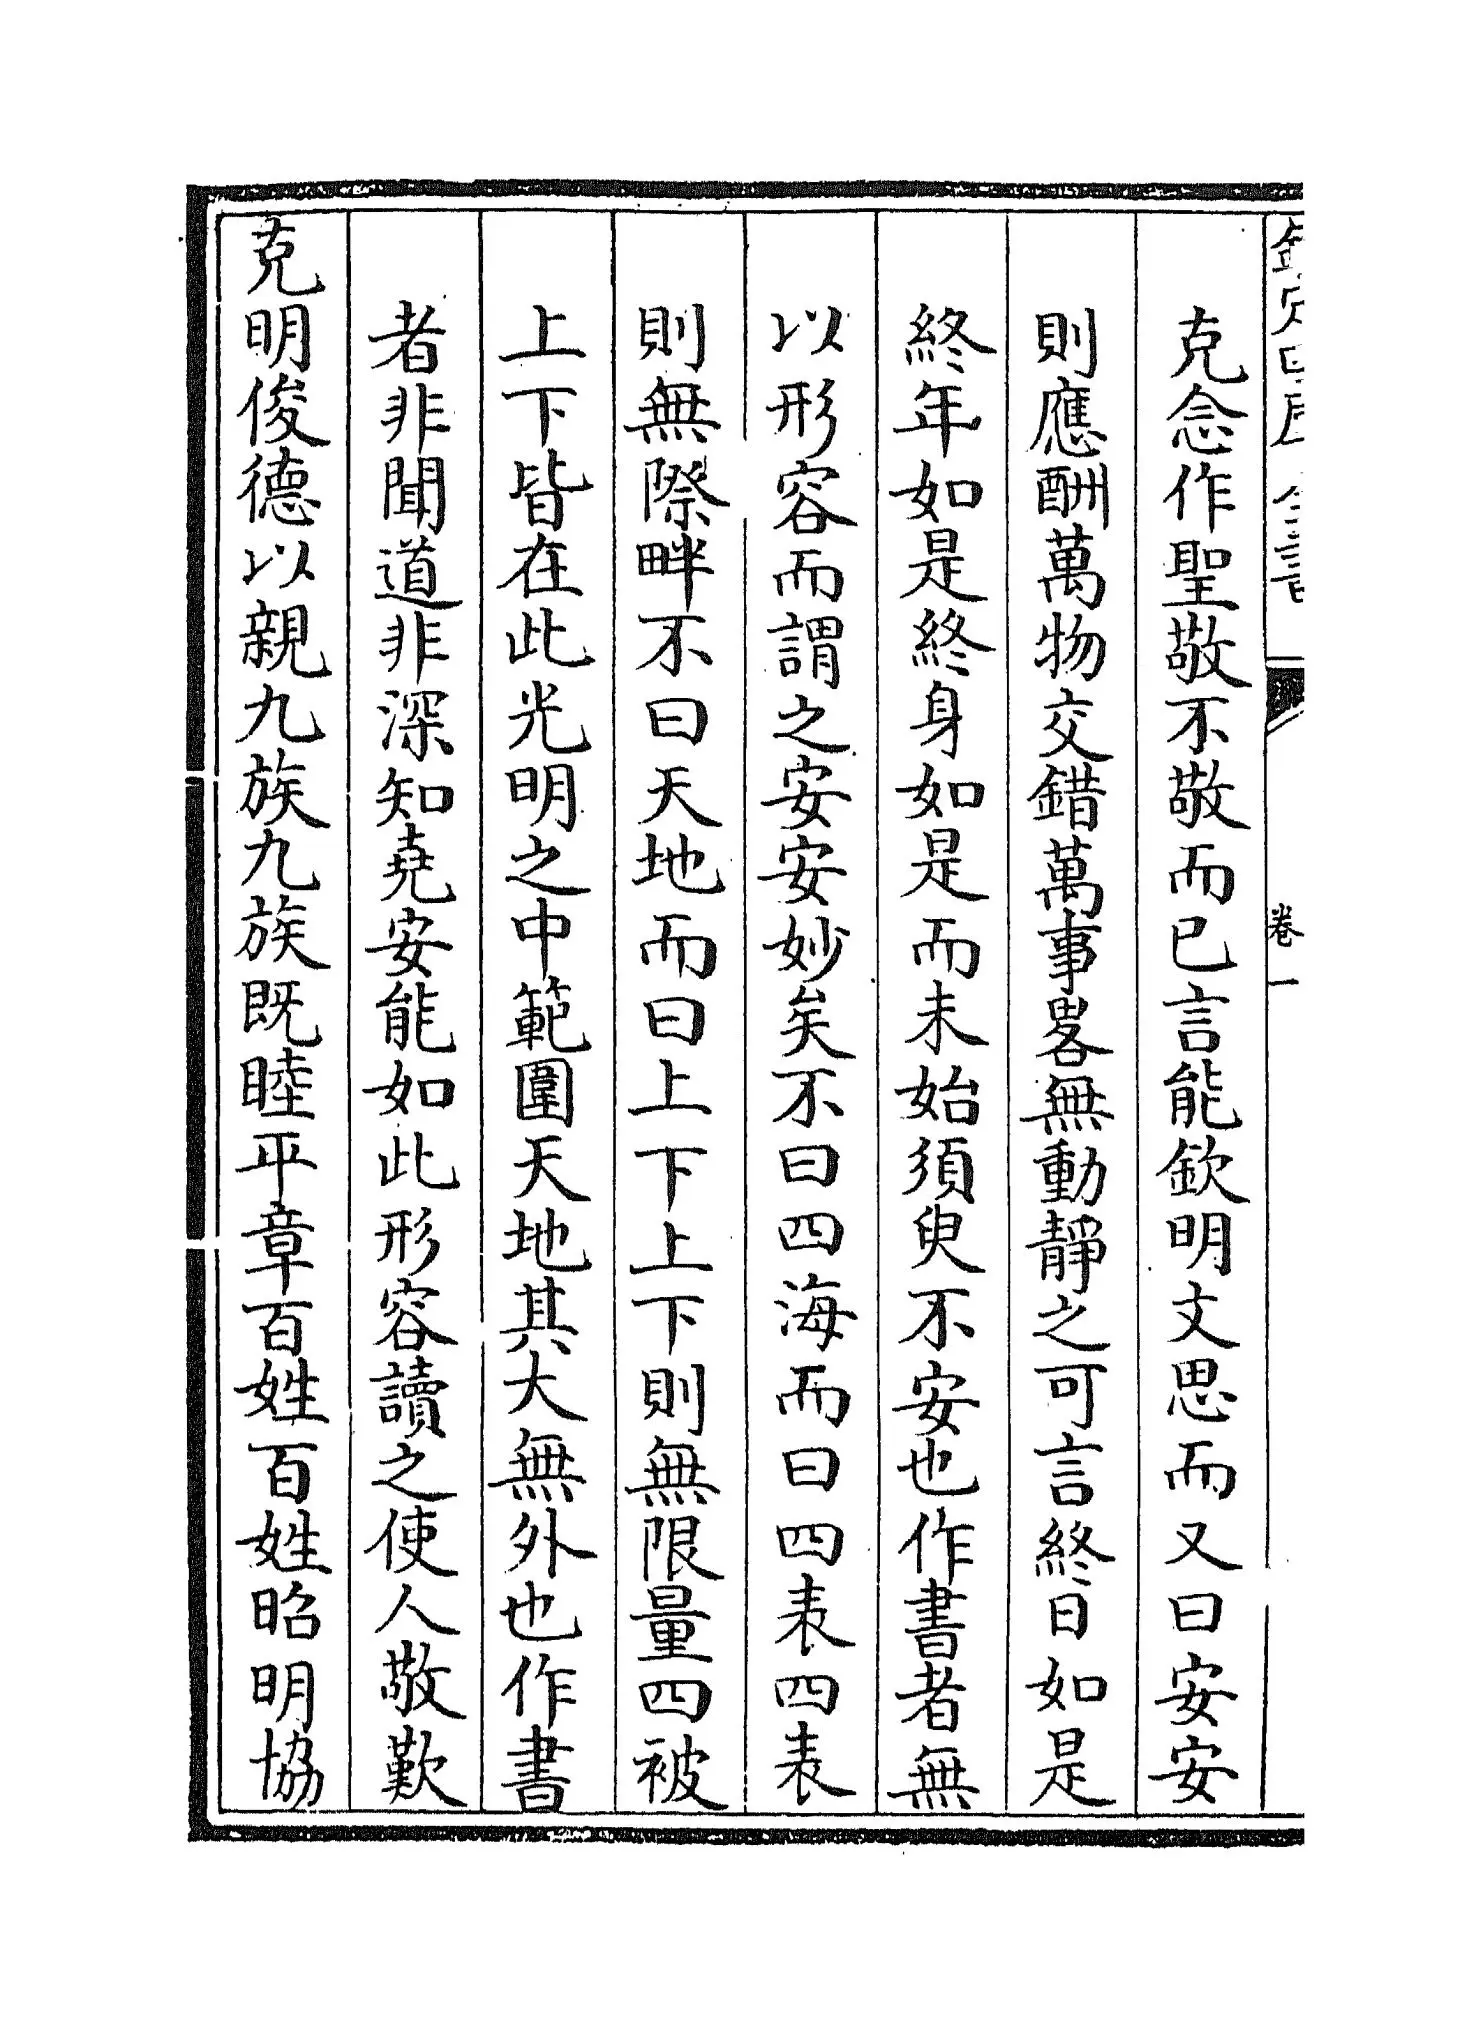 欽定四庫全書
卷一
克念作聖敬不敬而已言能欽明文思而又曰安安
則應酬萬物交錯萬事畧無動靜之可言終日如是
終年如是終身如是而未始須臾不安也作書者無
以形容而謂之安安妙矣不曰四海而曰四表四表
則無際畔不曰天地而曰上下上下則無限量四被
上下皆在此光明之中範圍天地其大無外也作書
者非聞道非深知堯安能如此形容讀之使人敬歎
克明俊德以親九族九族既睦平章百姓百姓昭明協